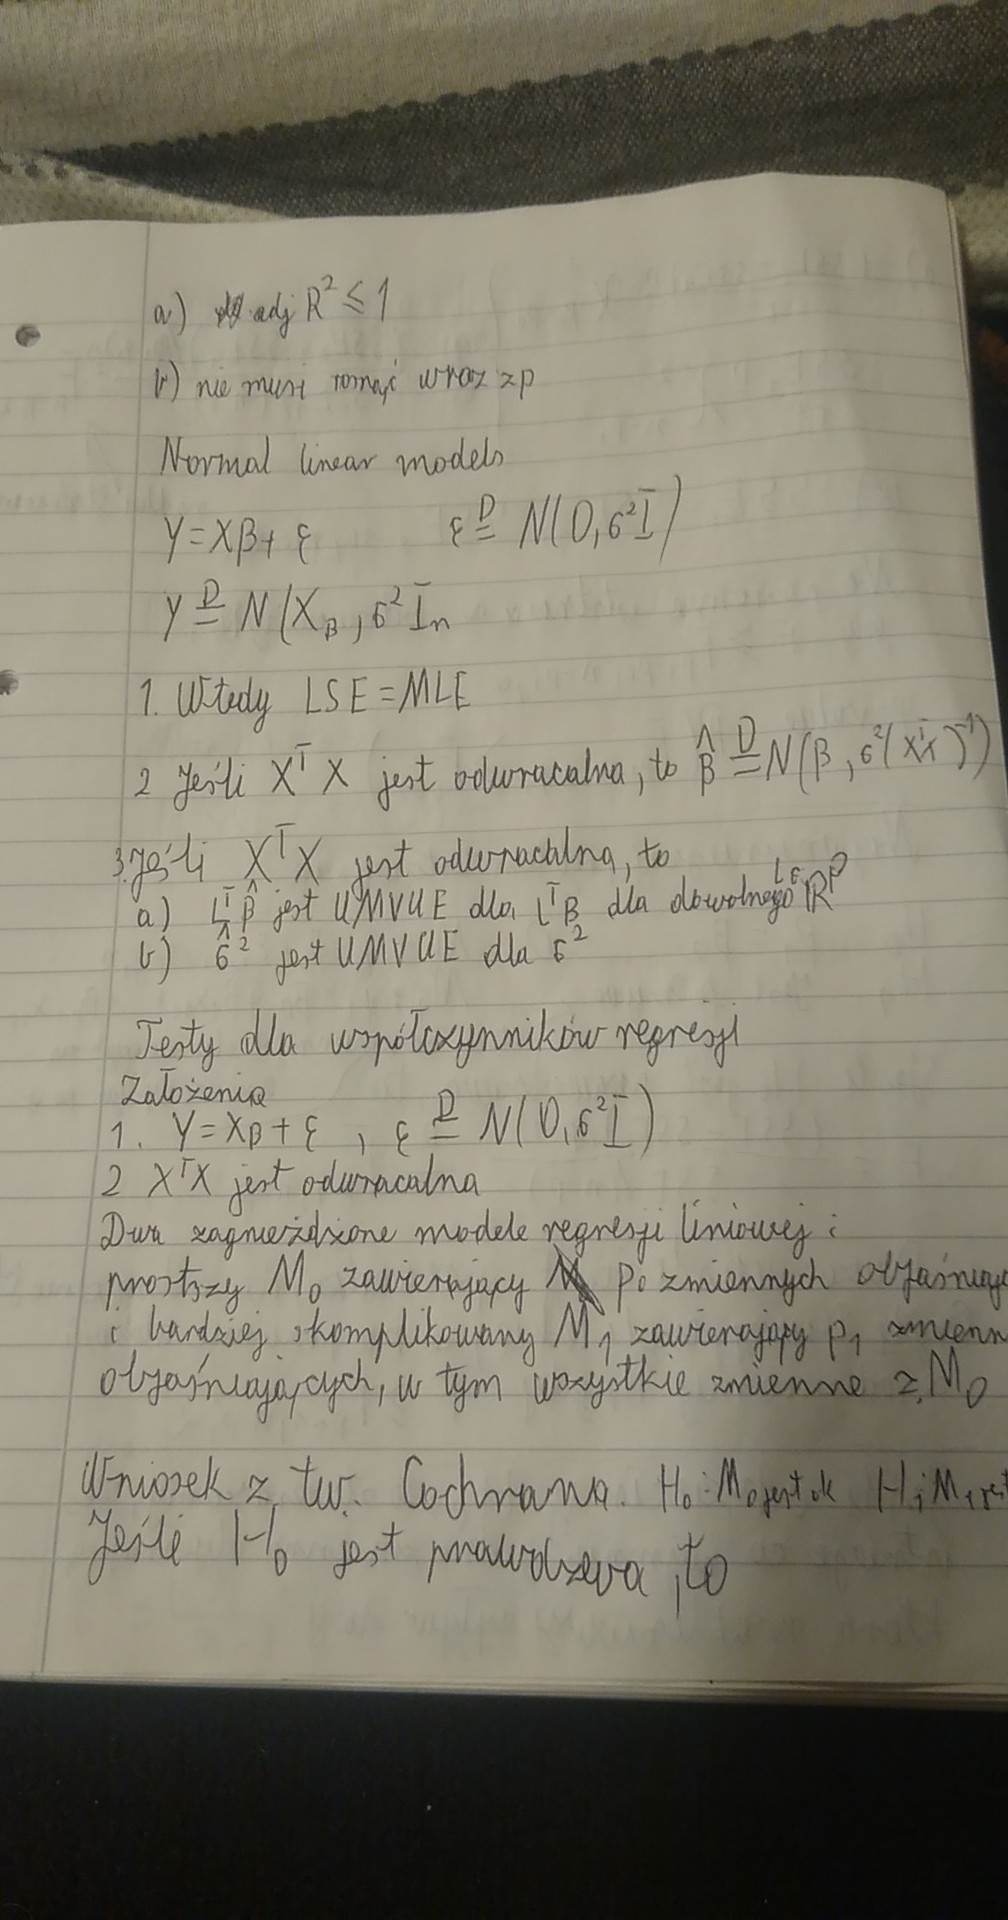 a) adj R² ≤ 1
b) nie musi rosnąć wraz z p
Normal linear models
Y = Xβ + ε ε \overset{D}{=} N(0, σ²I)
Y \overset{D}{=} N(Xβ, σ²Iₙ
1. Wtedy LSE = MLE
2 Jeśli XᵀX jest odwracalna, to β̂ \overset{D}{=} N(β, σ²(XᵀX)⁻¹)
3. Jeśli XᵀX jest odwracalna, to
a) Lᵀβ̂ jest UMVUE dla Lᵀβ dla dowolnego L∈ℝᵖ
b) σ̂² jest UMVUE dla σ²
Testy dla współczynników regresji
Założenia
1. Y = Xβ + ε , ε \overset{D}{=} N(0, σ²I)
2 XᵀX jest odwracalna
Dwa zagnieżdżone modele regresji liniowej:
prostszy M₀ zawierający p₀ zmiennych objaśniając
i bardziej skomplikowany M₁ zawierający p₁ zmienn
objaśniających, w tym wszystkie zmienne z M₀
Wniosek z tw. Cochrana. H₀: M₀ jest ok H₁: M₁ jest
Jeśli H₀ jest prawdziwa, to